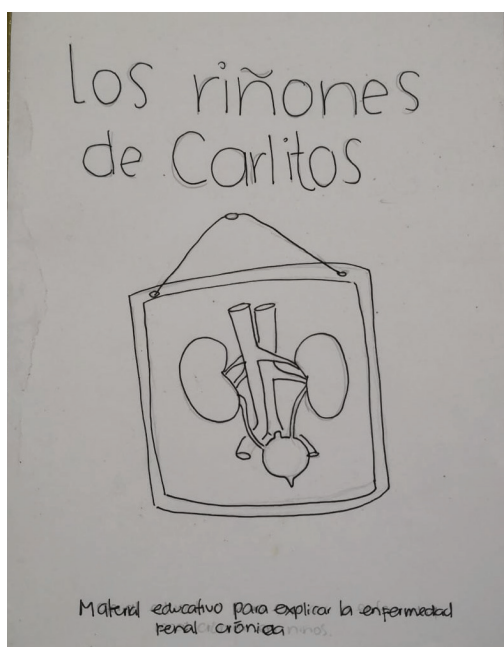 Los riñones
de Carlitos
Material educativo para explicar la enfermedad
renal crónica